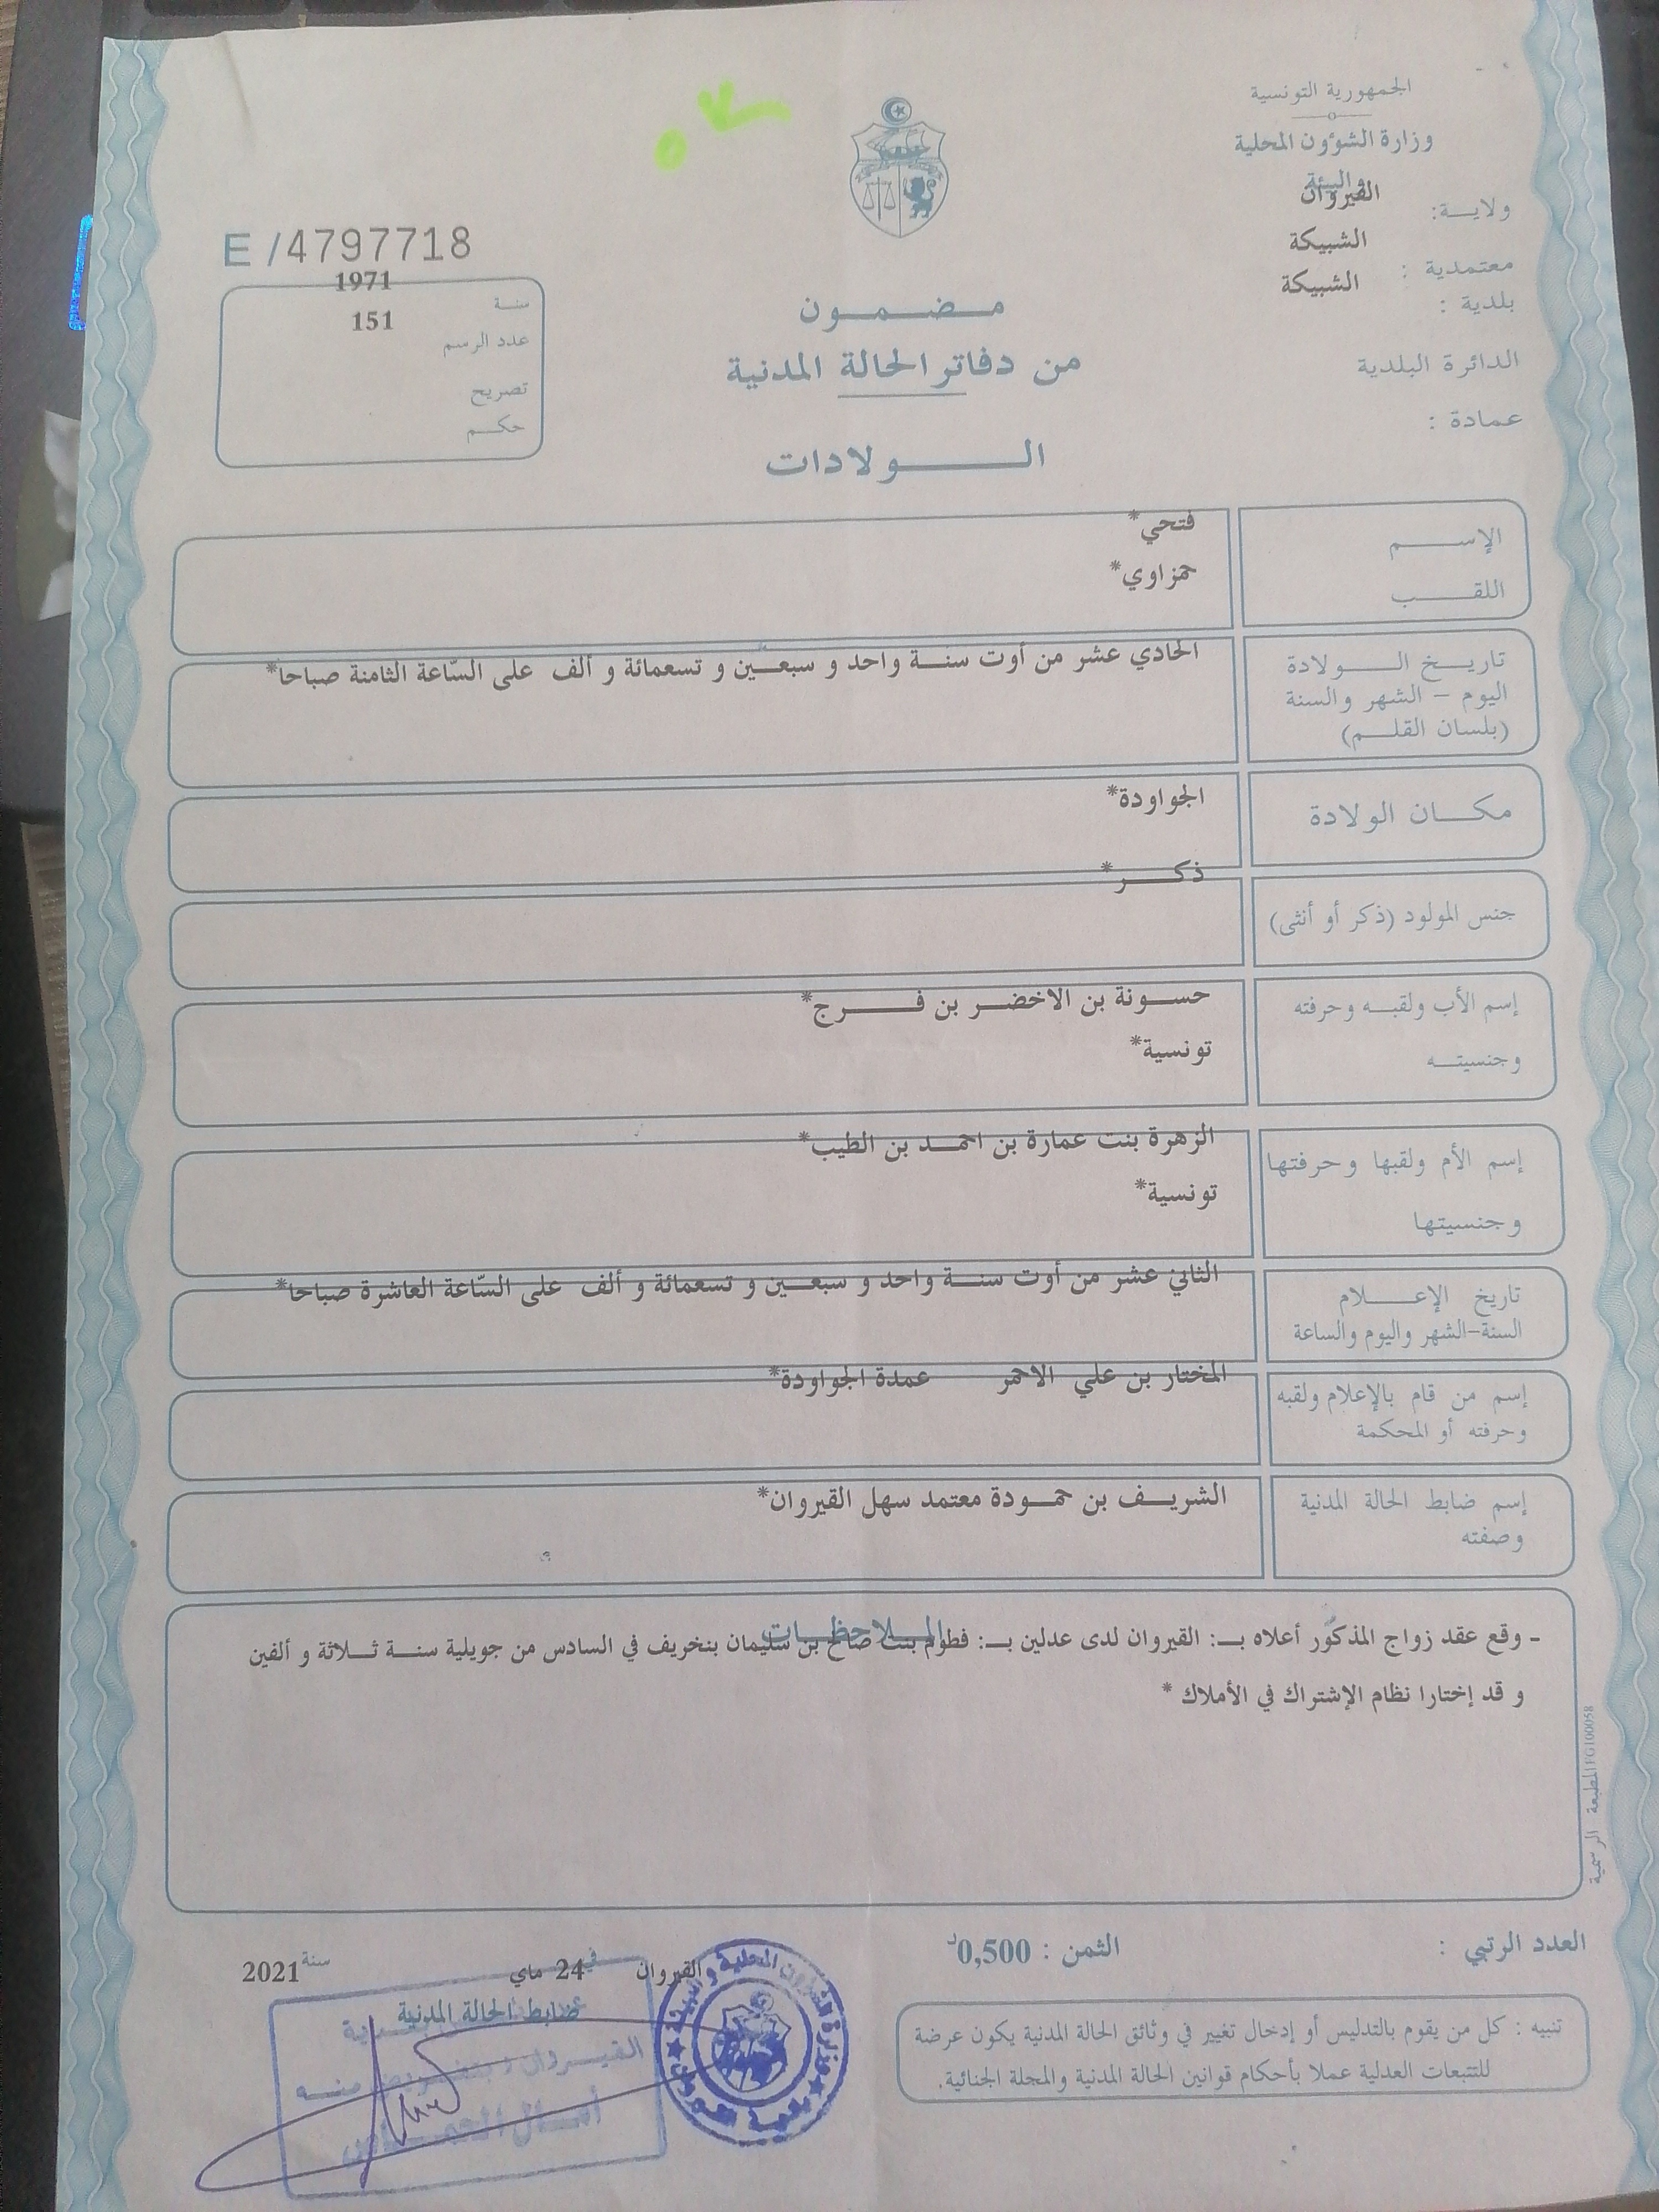 الجمهورية التونسية
وزارة الشؤون المحلية
والبيئة
ولاية: القيروان
معتمدية : الشبيكة
بلدية : الشبيكة
الدائرة البلدية
عمادة :
E /4797718
سنة 1971
عدد الرسم 151
تصريح
حكم
مضمون
من دفاتر الحالة المدنية
الولادات
الإسم فتحي*
اللقب حمزاوي*
تاريخ الولادة
اليوم - الشهر والسنة
(بلسان القلم)
الحادي عشر من أوت سنة واحد و سبعين و تسعمائة و ألف على السّاعة الثامنة صباحا*
مكان الولادة الجواودة*
جنس المولود (ذكر أو أنثى) ذكر*
إسم الأب ولقبه وحرفته حسونة بن الاخضر بن فرج*
وجنسيته تونسية*
إسم الأم ولقبها وحرفتها الزهرة بنت عمارة بن احمد بن الطيب*
وجنسيتها تونسية*
تاريخ الإعلام
السنة-الشهر واليوم والساعة
الثاني عشر من أوت سنة واحد و سبعين و تسعمائة و ألف على السّاعة العاشرة صباحا*
إسم من قام بالإعلام ولقبه
وحرفته أو المحكمة
المختار بن علي الاحمر عمدة الجواودة*
إسم ضابط الحالة المدنية
وصفته
الشريف بن حمودة معتمد سهل القيروان*
الملاحظات
- وقع عقد زواج المذكور أعلاه بـ: القيروان لدى عدلين بـ: فطوم بنت صالح بن سليمان بنخريف في السادس من جويلية سنة ثلاثة و ألفين
و قد إختارا نظام الإشتراك في الأملاك *
المطبعة الرسمية FG100058
العدد الرتبي :
الثمن : 0,500د
القيروان في 24 ماي سنة 2021
ضابط الحالة المدنية
تنبيه : كل من يقوم بالتدليس أو إدخال تغيير في وثائق الحالة المدنية يكون عرضة
للتتبعات العدلية عملا بأحكام قوانين الحالة المدنية والمجلة الجنائية.
القيروان وبتفويض منه